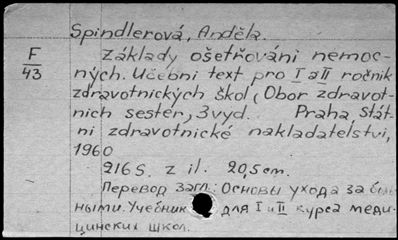 Spindlerová, Anděla.
F
43
Základy ošetřováni nemoc-
ných. Učebni text pro I a II ročník
zdravotnických škol, Obor zdravot-
nich sester, 3 vyd. Praha, Stát-
ni zdravotnické nakladatelstvi,
1960
216 S. z il. 20,5 cm.
Перевод загл: Основы ухода за боль-
ными. Учебник для I и II курса меди-
цинских школ.